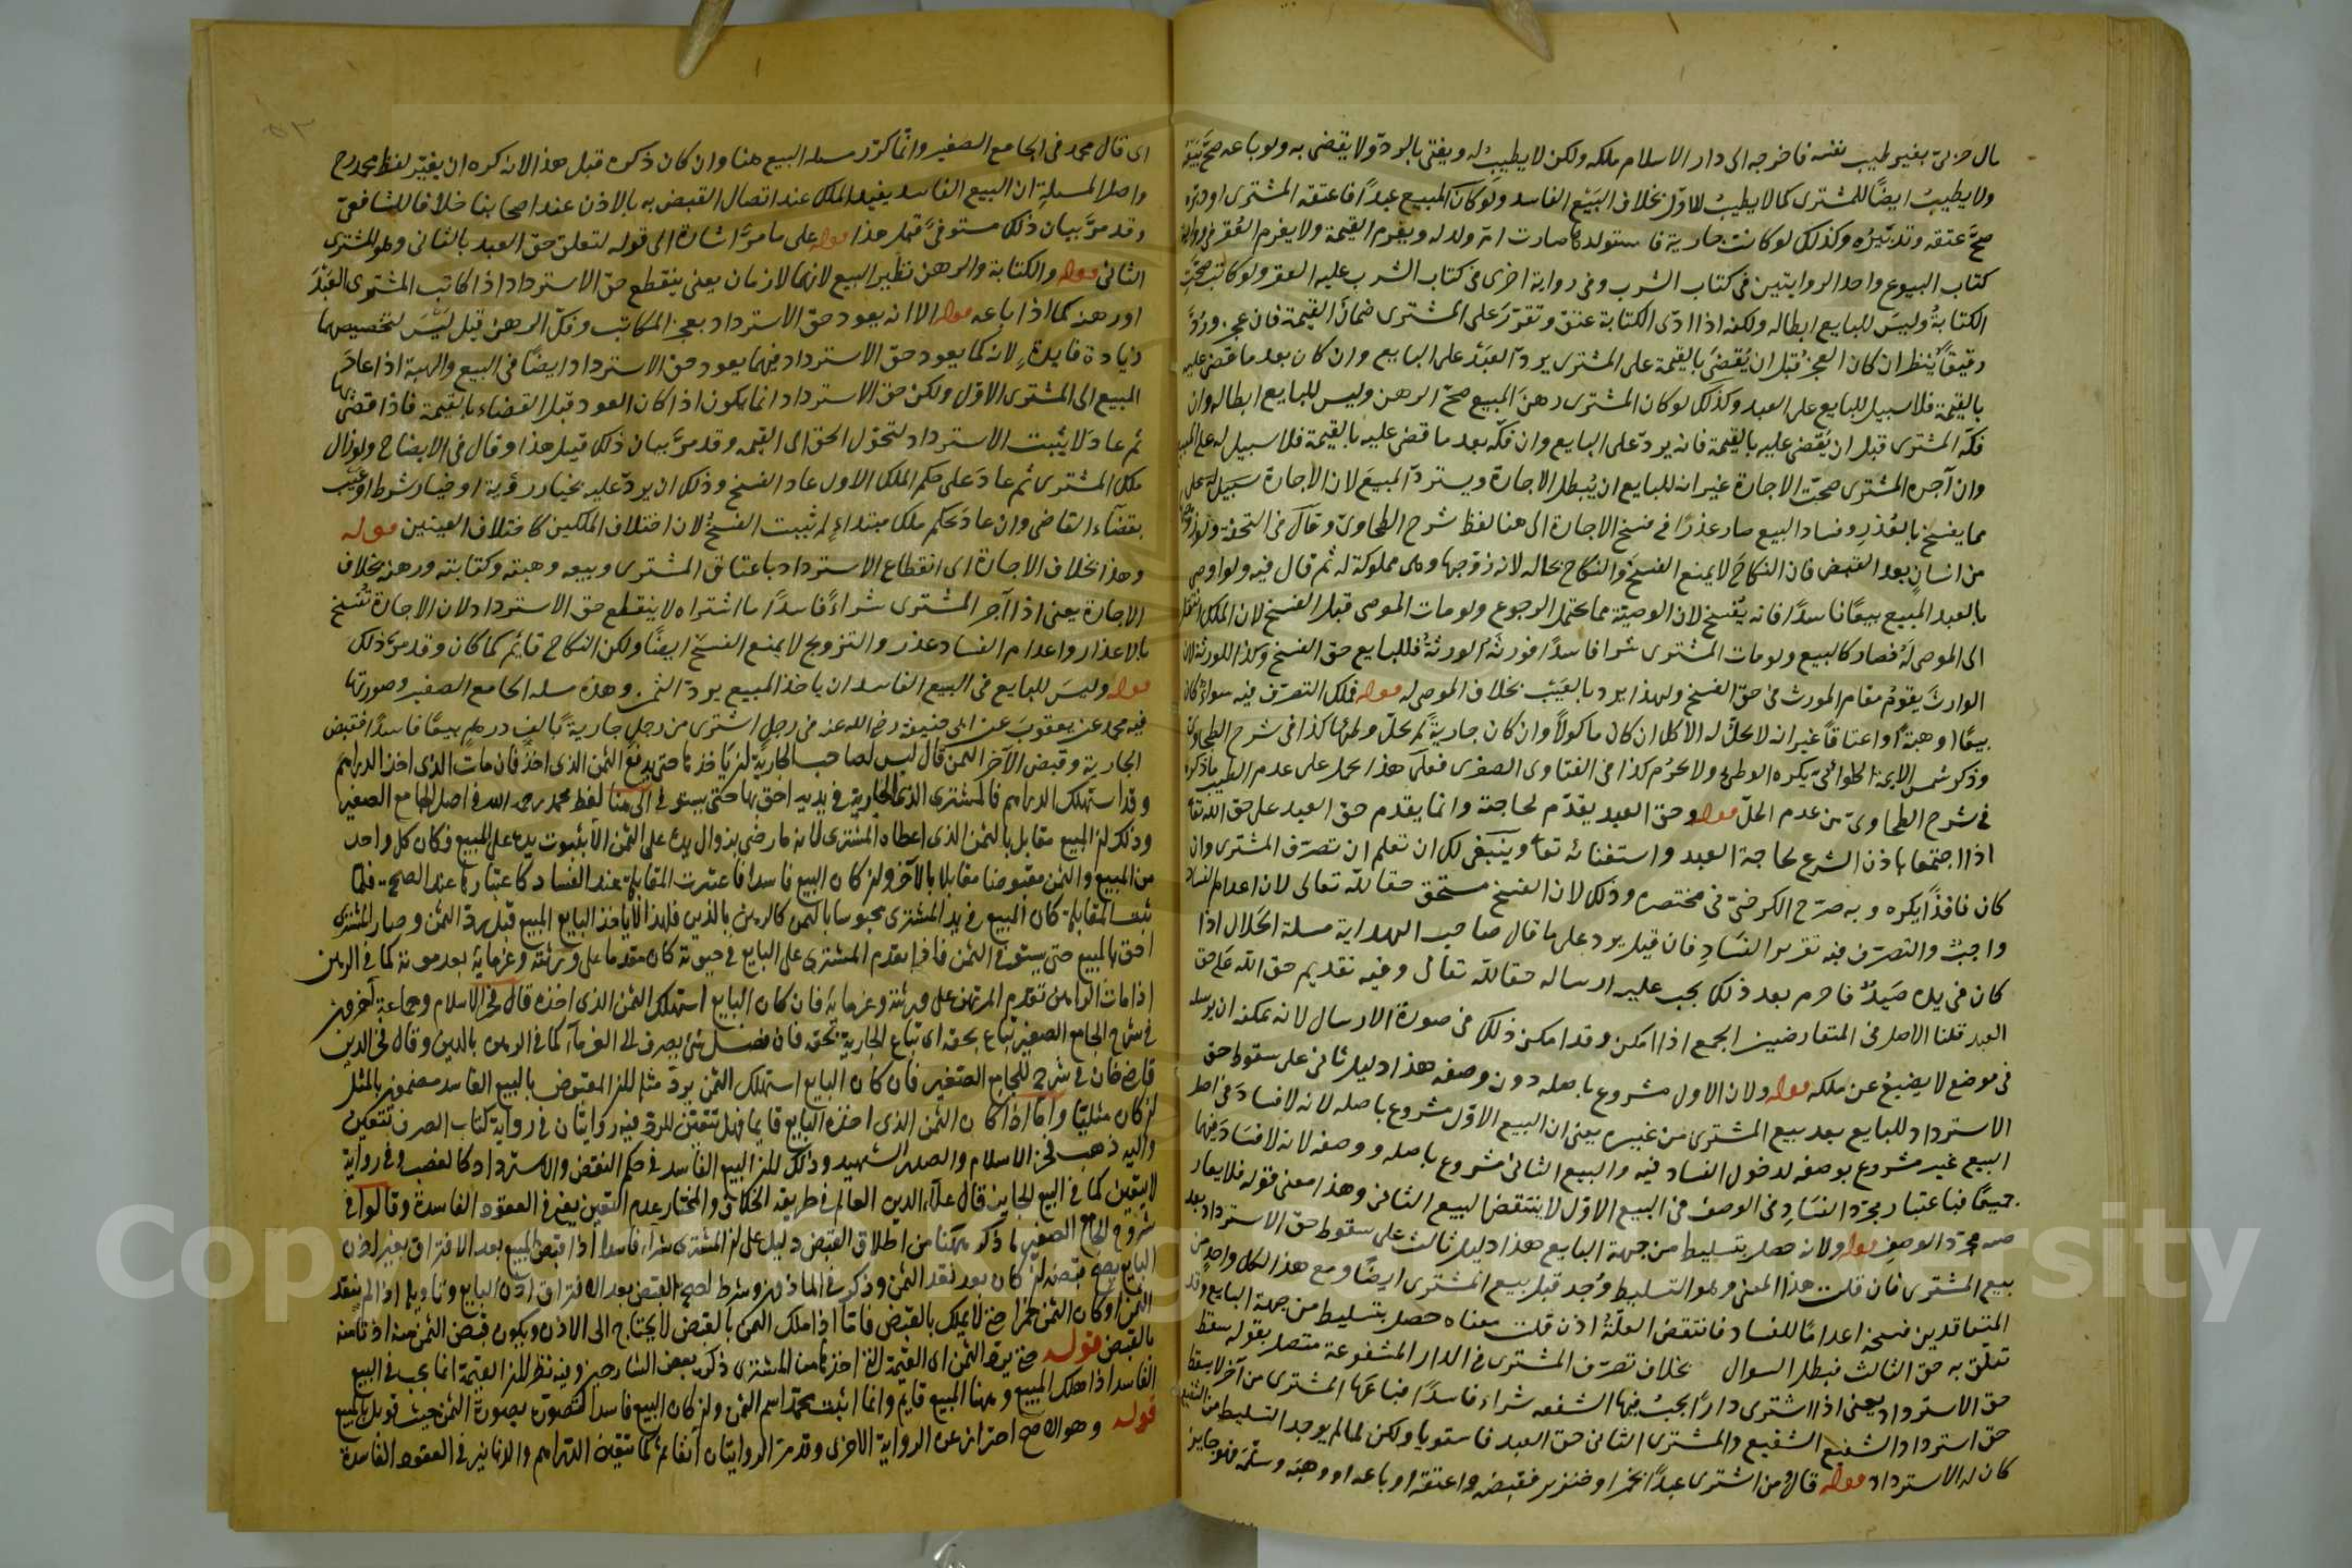 مال حربي بغير طيب نفسه فاخرجه الى دار الاسلام ملكه ولكن لا يطيب له ويفتى بالردّ ولا يقضى به ولو باعه صحّ بيعه
ولا يطيب ايضًا للمشترى كما لا يطيب للاوّل بخلاف البيع الفاسد ولو كان المبيع عبدًا فاعتقه المشترى او دبّره
صحّ عتقه وتدبيره وكذلك لو كانت جارية فاستولدها صارت ام ولد له ويغرم القيمة ولا يغرم العُقر فى رواية
كتاب البيوع واحد الروايتين فى كتاب الشرب وفى رواية اخرى فى كتاب الشرب عليه العقر ولو كاتب صحّت
الكتابة وليس للبايع ابطاله ولكنه اذا ادّى الكتابة عتق وتقرّر على المشترى ضمان القيمة فان عجز وردّ
رقيقًا ينظر ان كان العجز قبل ان يقضى بالقيمة على المشترى يردّ العبد على البايع وان كان بعد ما قضى عليه
بالقيمة فلا سبيل للبايع على العبد وكذلك لو كان المشترى رهن المبيع صحّ الرهن وليس للبايع ابطاله وان
فكّه المشترى قبل ان يقضى عليه بالقيمة فانه يردّ على البايع وان فكّه بعد ما قضى عليه بالقيمة فلا سبيل له على المبيع
وان آجره المشترى صحّت الاجارة غير انه للبايع ان يبطل الاجارة ويستردّ المبيع لان الاجارة
مما يفسخ بالعُذر وفساد البيع صار عذرًا فى فسخ الاجارة الى هنا لفظ شرح الطحاوى وقال فى التحفة ولو زوّجها
من انسان بعد القبض فان النكاح لا يمنع الفسخ والنكاح بحاله لانه زوّجها وهى مملوكة له ثم قال فيه ولو اوصى
بالعبد المبيع بيعًا فاسدًا فانه يفسخ لان الوصيّة مما يحتمل الرجوع ولو مات الموصى قبل الفسخ لان الملك انتقل
الى الموصى له فصار كالبيع ولو مات المشترى شرا فاسدًا فورثه الورثة فللبايع حق الفسخ وكذا للورثة لان
الوارث يقوم مقام المورث فى حق الفسخ ولهذا يردّ بالعيب بخلاف الموصى له قوله فملك التصرّف فيه سواء كان
بيعًا او هبة او اعتاقًا غير انه لا يحلّ له الاكل ان كان ماكولا وان كان جارية لم يحلّ وطئها كذا فى شرح الطحاوى
وذكر شمس الايمة الحلوانىّ يكره الوطىء ولا يحرم كذا فى الفتاوى الصغرى فعلى هذا يحمل على عدم الطيب ما ذكره
فى شرح الطحاوى من عدم الحلّ قوله وحق العبد يقدّم لحاجته وانما يقدم حق العبد على حق الله تعا
اذا اجتمعا باذن الشرع لحاجة العبد واستغنائه تعا وينبغى لك ان تعلم ان تصرّف المشترى وان
كان نافذًا يكره وبه صرّح الكرخىّ فى مختصره وذلك لان الفسخ مستحق حقا لله تعالى لان اعدام الفساد
واجب والتصرّف فيه تقرير الفساد فان قيل يرد على ما قال صاحب الهداية مسلة الحلال اذا
كان فى يده صيد فاحرم بعد ذلك يجب عليه ارساله حقا لله تعالى وفيه تقديم حق الله على حق
العبد قلنا الاصل فى المتعارضين الجمع اذا امكن وقد امكن ذلك فى صورة الارسال لانه يمكنه ان يرسله
فى موضع لا يضيع عن ملكه قوله ولان الاول مشروع باصله دون وصفه هذا دليل ثانى على سقوط حق
الاسترداد للبايع بعد بيع المشترى من غيره يعنى ان البيع الاوّل مشروع باصله لانه لا فساد فى اصل
البيع غير مشروع بوصفه لدخول الفساد فيه والبيع الثانى مشروع باصله ووصفه لانه لا فساد فيهما
جميعًا فباعتبار مجرّد الفساد فى الوصف فى البيع الاوّل لا ينتقض البيع الثانى وهذا معنى قوله فلا يعارضه
مجرّد الوصف قوله ولانه حصل بتسليط من جهة البايع هذا دليل ثالث على سقوط حق الاسترداد بعد
بيع المشترى فان قلت هذا المعنى وهو التسليط وُجد قبل بيع المشترى ايضًا ومع هذا لكل واحد من
المتعاقدين فسخه اعدامًا للفساد فانتقض العلّة اذن قلت معناه حصل بتسليط من جهة البايع وقد
تعلّق به حق الثالث فبطل السوال بخلاف تصرّف المشترى فى الدار المشفوعة متصل بقوله سقط
حق الاسترداد يعنى اذا اشترى دارًا يجب فيها الشفعه شراء فاسدًا فباعها المشترى من آخر لا يسقط
حق استرداد الشفيع الشفيع والمشترى الثانى حق العبد فاستويا ولكن لما لم يوجد التسليط من الشفيع
كان له الاسترداد قوله قال ومن اشترى عبدًا بخمر او خنزير فقبضه واعتقه او باعه او وهبه وسلّمه فهو جايز
اى قال محمد فى الجامع الصغير وانما كرّر مسله البيع هنا وان كان ذكره قبل هذا لانه كره ان يغيّر لفظ محمد رح
واصل المسلة ان البيع الفاسد يفيد الملك عند اتصال القبض به بالاذن عند اصحابنا خلافا للشافعىّ
وقد مرّ بيان ذلك مستوفىً قبل هذا قوله على ما مرّ اشارة الى قوله لتعلق حق العبد بالثانى وهو المشترى
الثانى قوله والكتابة والرهن نظير البيع لانهما لازمان يعنى ينقطع حق الاسترداد اذا كاتب المشترى العبد
او رهنه كما اذا باعه قوله الا انه يعود حق الاسترداد بعجز المكاتب وفكّ الرهن قيل ليس لتخصيصهما
زيادة فايدة لانه كما يعود حق الاسترداد فيهما يعود حق الاسترداد ايضًا فى البيع والهبة اذا عاد
المبيع الى المشترى الاوّل ولكن حق الاسترداد انما يكون اذا كان العود قبل القضاء بالقيمة فاذا قضى بها
ثم عاد لا يثبت الاسترداد لتحوّل الحق الى القيمه وقد مرّ بيان ذلك قبل هذا وقال فى الايضاح ولو زال
ملك المشترى ثم عاد على حكم الملك الاول عاد الفسخ وذلك ان يردّ عليه بخيار رؤية او خيار شرط او عيب
بقضآء القاضى وان عاد بحكم ملك مبتداء لم يثبت الفسخ لان اختلاف الملكين كاختلاف العينين قوله
وهذا بخلاف الاجارة اى انقطاع الاسترداد باعتاق المشترى وبيعه وهبته وكتابته ورهنه بخلاف
الاجارة يعنى اذا آجر المشترى شراءً فاسدًا ما اشتراه لا ينقطع حق الاسترداد لان الاجارة تفسخ
بالاعذار واعدام الفساد عذر والتزويج لا يمنع الفسخ ايضًا ولكن النكاح قايم كما كان وقد مرّ ذلك
قوله وليس للبايع فى البيع الفاسد ان ياخذ المبيع يردّ الثمن وهذه مسله الجامع الصغير وصورتها
فيه محمد عن يعقوب عن ابى حنيفة رضى الله عنه فى رجل اشترى من رجل جارية بالف درهم بيعًا فاسدًا فقبض
الجارية وقبض الآخر الثمن قال ليس لصاحب الجارية ان ياخذها حتى يدفع الثمن الذى اخذ فان مات الذى اخذ الدراهم
وقد استهلك الدراهم فالمشترى الذى الجارية فى يديه احق بها حتى يستوفى الى هنا لفظ محمد رحمه الله فى اصل الجامع الصغير
وذلك لان المبيع مقابل بالثمن الذى اعطاه المشترى لانه ما رضى بزوال يده على الثمن الا بثبوت يده على المبيع فكان كل واحد
من المبيع والثمن مقبوضا مقابلا بالآخر وان كان البيع فاسدا فاعتبرت المقابلة عند الفساد كاعتبارها عند الصحة فلما
ثبت المقابلة كان المبيع فى يد المشترى محبوسا بالثمن كالرهن بالدين فلهذا لا ياخذ البايع المبيع قبل ردّ الثمن وصار المشترى
احق بالمبيع حتى يستوفى الثمن فاذا تقدم المشترى على البايع فى حيوته كان مقدما على ورثته وغرمايه بعد موته كما فى الرهن
اذا مات الراهن تقدم المرتهن على ورثته وغرمايه فان كان البايع استهلك الثمن الذى اخذه قال فخر الاسلام وجماعة آخرون
فى شروح الجامع الصغير تباع بحقه اى تباع الجارية بحقه فان فضل شئ يصرف الى الغرمآء كما فى الرهن بالدين وقال فخر الدين
قاضى خان فى شرح للجامع الصغير فان كان البايع استهلك الثمن يردّ مثله لان المقبوض بالبيع الفاسد مضمون بالمثل
ان كان مثليّا واما اذا كان الثمن الذى اخذه البايع قايما فهل تتعيّن للردّ فيه روايتان فى رواية كتاب الصرف تتعين
واليه ذهب فخر الاسلام والصدر الشهيد وذلك لان البيع الفاسد فى حكم النقض والاسترداد كالغصب وفى رواية
لا يتعين كما فى البيع الجايز قال علآء الدين العالم فى طريقة الخلاف والمختار عدم التعيين يعنى فى العقود الفاسدة وقالوا فى
شروح الجامع الصغير ما ذكر ههنا من اطلاق القبض دليل على ان المشترى شراء فاسدا اذا قبض المبيع بعد الافتراق بغير اذن
البايع يصح قبضه ان كان بعد نقد الثمن وذكر فى الماذون وشرط لصحة القبض بعد الافتراق اذن البايع وتاويله اذا لم ينقد
الثمن او كان الثمن خمرا حتى لا يملك بالقبض فامّا اذا ملك الثمن بالقبض لا يحتاج الى الاذن ويكون قبض الثمن منه اذنا منه
بالقبض قوله حتى يردّ الثمن اى القيمة التى اخذها من المشترى ذكره بعض الشارحين وفيه نظر لان القيمة انما يجب فى البيع
الفاسد اذا هلك المبيع وههنا المبيع قايم وانما اثبت محمد اسم الثمن وان كان البيع فاسدا لتصوره بصورة الثمن حيث قوبل بالمبيع
قوله وهو الاصح احتراز عن الرواية الاخرى وقد مرّ الروايتان آنفا ثم لما تتعيّن الدراهم والدنانير فى العقود الفاسدة
Copyright © King Saud University